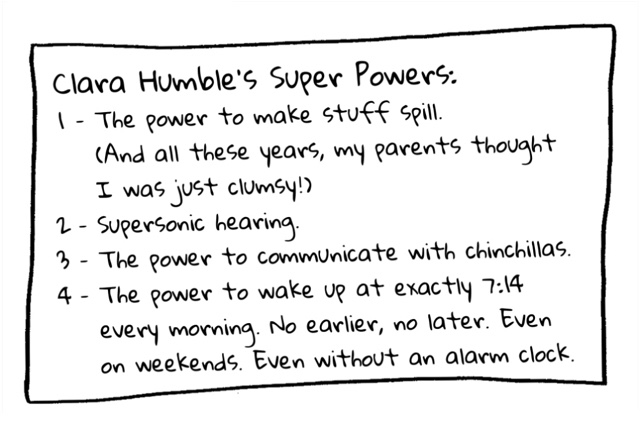 Clara Humble's Super Powers:
1 - The power to make stuff spill.
(And all these years, my parents thought
I was just clumsy!)
2 - Supersonic hearing.
3 - The power to communicate with chinchillas.
4 - The power to wake up at exactly 7:14
every morning. No earlier, no later. Even
on weekends. Even without an alarm clock.